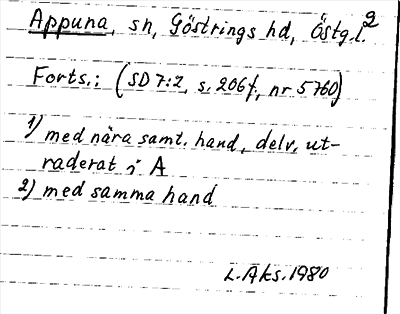 Appuna, sn, Göstrings hd, Östg.l. 2
Forts.: (SD 7:2, s. 206 f, nr 5760)
1) med nära samt. hand, delv. ut-
raderat i A
2) med samma hand
L. Aks. 1980